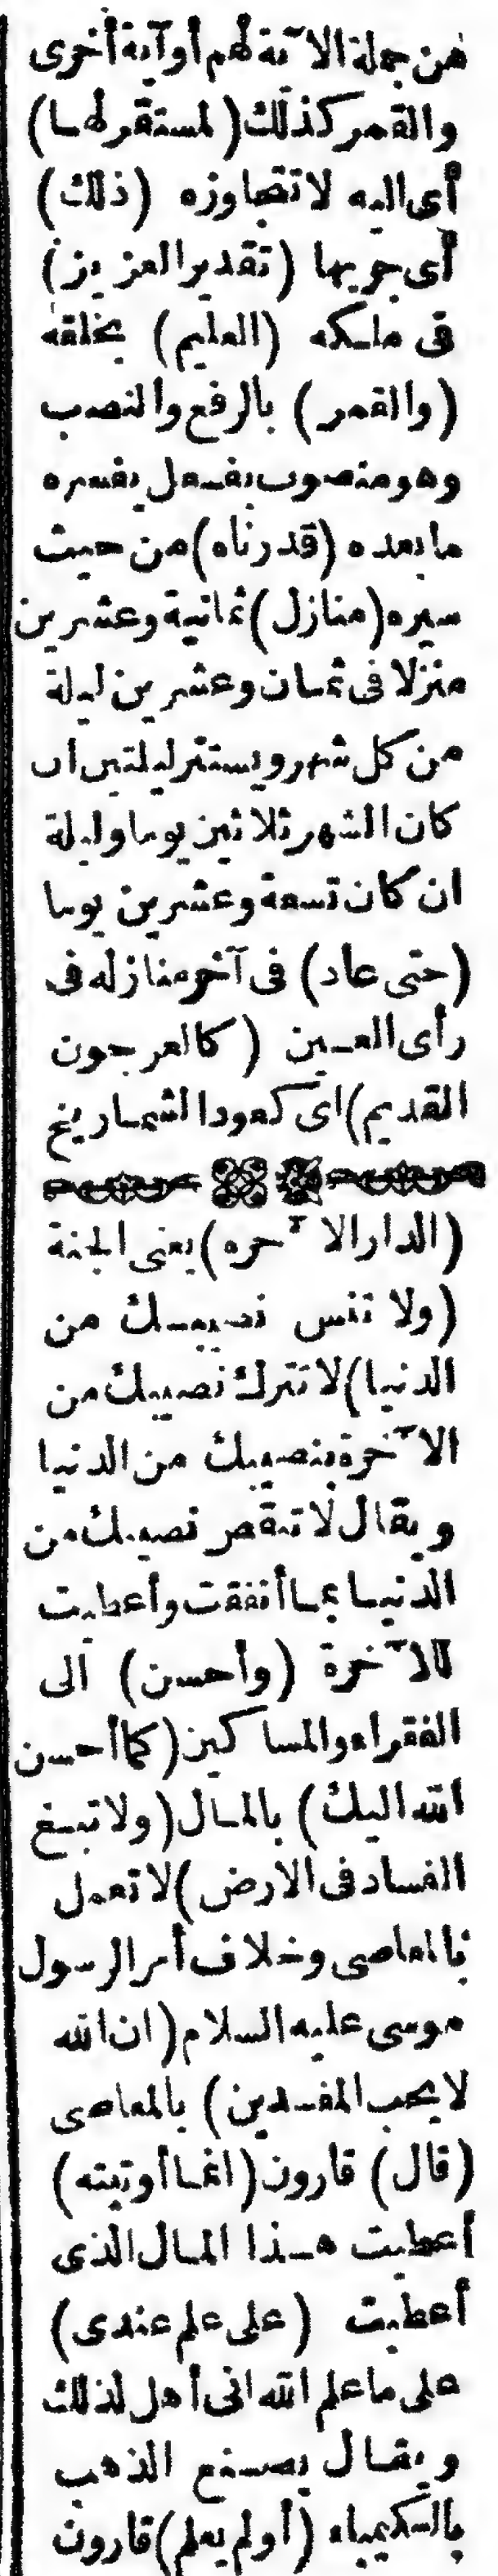 من جملة الآية لهم أو آية أخرى
والقمر كذلك (لمستقر لها)
أى اليه لا تتجاوزه (ذلك)
أى جريها (تقدير العزيز)
فى ملكه (العليم) بخلقه
(والقمر) بالرفع والنصب
وهو منصوب بفعل يفسره
ما بعده (قدرناه) من حيث
سيره (منازل) ثمانية وعشرين
منزلا فى ثمان وعشرين ليلة
من كل شهر ويستتر ليلتين ان
كان الشهر ثلاثين يوما وليلة
ان كان تسعة وعشرين يوما
(حتى عاد) فى آخر منازله فى
رأى العين (كالعرجون
القديم) اى كعود الشماريخ
(الدار الآخرة) يعنى الجنة
(ولا تنس نصيبك من
الدنيا) لا تترك نصيبك من
الآخرة بنصيبك من الدنيا
ويقال لا تنقص نصيبك من
الدنيا بما أنفقت وأعطيت
للآخرة (وأحسن) الى
الفقراء والمساكين (كما أحسن
الله اليك) بالمال (ولا تبغ
الفساد فى الارض) لا تعمل
بالمعاصى وخلاف أمر الرسول
موسى عليه السلام (ان الله
لا يحب المفسدين) بالمعاصى
(قال) قارون (انما أوتيته)
أعطيت هذا المال الذى
أعطيت (على علم عندى)
على ما علم الله انى أهل لذلك
ويقال يصنع الذهب
بالكيمياء (أولم يعلم) قارون